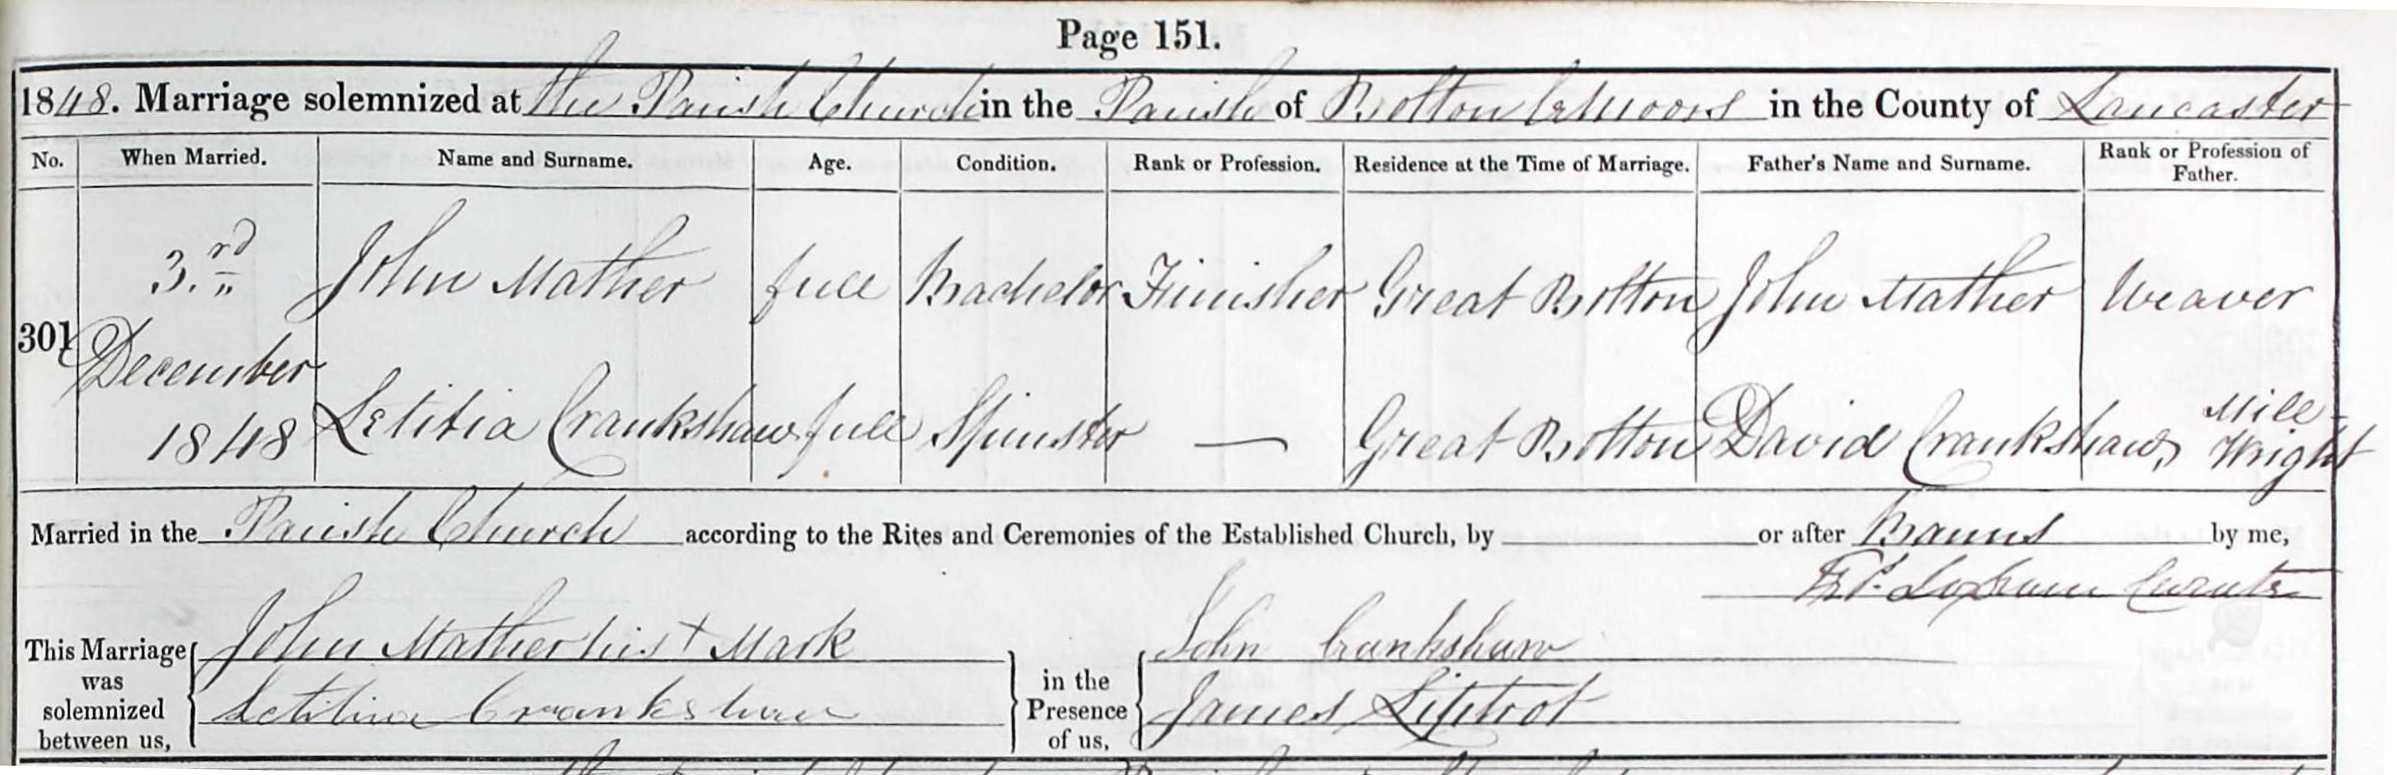 Page 151.
1848. Marriage solemnized at the Parish Church in the Parish of Bolton le Moors in the County of Lancaster
No. When Married. Name and Surname. Age. Condition. Rank or Profession. Residence at the Time of Marriage. Father's Name and Surname. Rank or Profession of Father.
3.rd John Mather full Bachelor Finisher Great Bolton John Mather Weaver
301
December
1848 Letitia Crankshaw full Spinster — Great Bolton David Crankshaw Mill-Wright
Married in the Parish Church according to the Rites and Ceremonies of the Established Church, by or after Banns by me,
Loxham Curate
This Marriage was solemnized between us, John Mather his + Mark in the Presence of us, John Crankshaw
Letitia Crankshaw James Liptrot